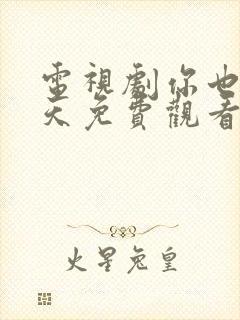 電視劇你也
天免費觀看
火星兔皇